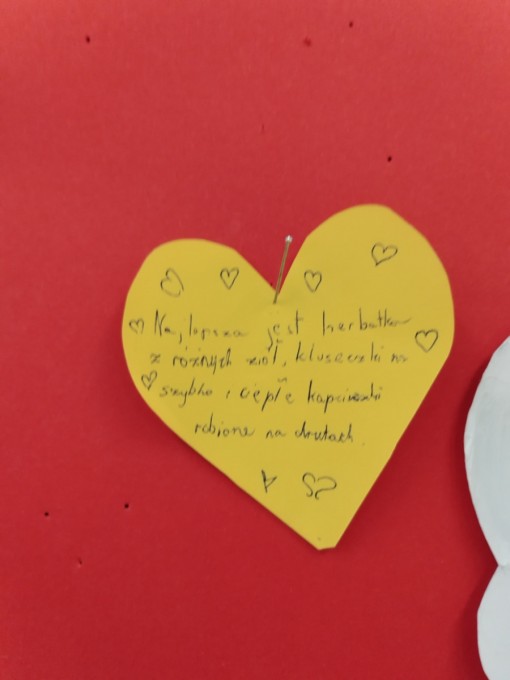 Najlepsza jest herbatka
z różnych ziół, kluseczki na
szybko i ciepłe kapciuszki
robione na drutach.